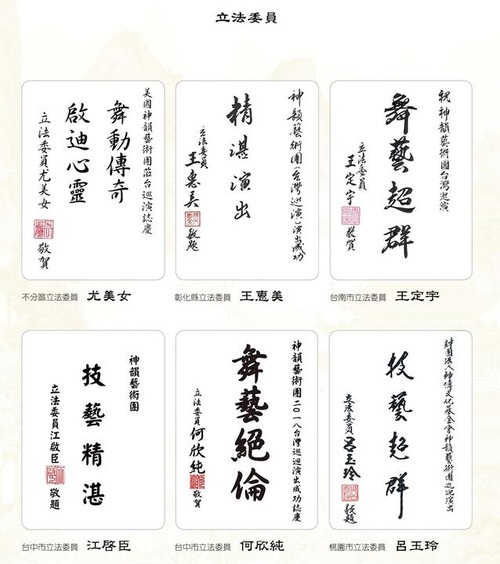 立法委員
美國神韻藝術團莅台巡演誌慶
舞動傳奇
啟迪心靈
立法委員尤美女
敬賀
不分區立法委員 尤美女
神韻藝術團(台灣巡演)演出成功
精湛演出
立法委員
王惠美
敬題
彰化縣立法委員 王惠美
祝神韻藝術團台灣巡演
舞藝超群
立法委員
王定宇
敬賀
台南市立法委員 王定宇
神韻藝術團
技藝精湛
立法委員江啟臣
敬題
台中市立法委員 江啓臣
神韻藝術團二〇一八台灣巡迴演出成功誌慶
舞藝絕倫
立法委員何欣純
敬賀
台中市立法委員 何欣純
財團法人神傳文化基金會神韻藝術團巡迴演出
技藝超群
立法委員呂玉玲
敬題
桃園市立法委員 呂玉玲